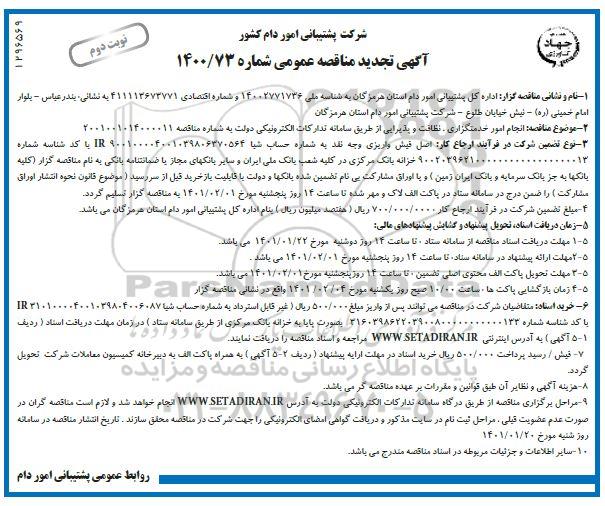 شرکت پشتیبانی امور دام کشور
آگهی تجدید مناقصه عمومی شماره ۱۴۰۰/۷۳
نوبت دوم
۱۲۹۶۵۶۹
جهاد
۱-نام و نشانی مناقصه گزار: اداره کل پشتیبانی امور دام استان هرمزگان به شناسه ملی ۱۴۰۰۲۷۷۱۷۳۶ و شماره اقتصادی ۴۱۱۱۱۳۶۷۳۷۷۱ به نشانی، بندرعباس – بلوار
امام خمینی (ره) – نبش خیابان طلوع – شرکت پشتیبانی امور دام استان هرمزگان
۲-موضوع مناقصه: انجام امور خدمتگزاری . نظافت و پذیرایی از طریق سامانه تدارکات الکترونیکی دولت به شماره مناقصه ۲۰۰۱۰۰۱۰۱۴۰۰۰۰۱۱
۳-نوع تضمین شرکت در فرآیند ارجاع کار: اصل فیش واریزی وجه نقد به شماره حساب شبا IR ۹۰۰۱۰۰۰۰۴۰۰۱۰۳۹۸۰۶۳۷۰۵۶۴ با کد شناسه شماره
خزانه بانک مرکزی در کلیه شعب بانک ملی ایران و سایر بانکهای مجاز یا ضمانتنامه بانکی به نام مناقصه گزار (کلیه
بانکها به جز بانک سرمایه و بانک ایران زمین ) و یا اوراق مشارکت بی نام تضمین شده بانکها و دولت با قابلیت بازخرید قبل از سررسید ( موضوع قانون نحوه انتشار اوراق
مشارکت ) را ضمن درج در سامانه ستاد در پاکت الف لاک و مهر شده تا ساعت ۱۴ روز پنجشنبه مورخ ۱۴۰۱/۰۲/۰۱ به مناقصه گزار تسلیم گردد.
۴-مبلغ تضمین شرکت در فرآیند ارجاع کار ۷۰۰/۰۰۰/۰۰۰ ریال ( هفتصد میلیون ریال ) بنام اداره کل پشتیبانی امور دام استان هرمزگان می باشد.
۵-زمان دریافت اسناد، تحویل پیشنهاد و گشایش پیشنهادهای مالی:
۵-۱ مهلت دریافت اسناد مناقصه از سامانه ستاد ۰ تا ساعت ۱۴ روز دوشنبه مورخ ۱۴۰۱/۰۱/۲۲ می باشد.
۵-۲مهلت ارائه پیشنهاد در سامانه ستاد، تا ساعت ۱۴ روز پنجشنبه مورخ ۱۴۰۱/۰۲/۰۱ می باشد .
۵-۳ مهلت تحویل پاکت الف محتوی اصل تضمین ۰ تا ساعت ۱۴ روزپنجشنبه مورخ۱۴۰۱/۰۲/۰۱ می باشد.
۵-۴ زمان بازگشایی پاکت ها ۰ساعت ۱۰/۰۰ صبح روز یکشنبه مورخ ۱۴۰۱/۰۲/۰۴ واقع در نشانی مناقصه گزار
۶- خرید اسناد: متقاضیان شرکت در مناقصه می توانند پس از واریز مبلغ۵۰۰/۰۰۰ ریال ( غیر قابل استرداد به شماره حساب شبا IR ۳۱۰۱۰۰۰۰۴۰۰۱۰۳۹۸۰۴۰۰۶۰۸۷
با کد شناسه شماره بصورت پایا به خزانه بانک مرکزی از طریق سامانه ستاد ) در زمان مهلت دریافت اسناد ( ردیف
۵-۱ ) به آدرس اینترنتی WWW.SETADIRAN.IR مراجعه و اسناد مناقصه را دریافت نمایند.
۷- فیش / رسید پرداخت ۵۰۰/۰۰۰ ریال خرید اسناد در مهلت ارایه پیشنهاد ( ردیف ۵-۲ آگهی ) به همراه پاکت الف به دبیرخانه کمیسیون معاملات شرکت تحویل
گردد.
۸-هزینه آگهی و نظایر آن طبق قوانین و مقررات بر عهده مناقصه گر می باشد.
۹-مراحل برگزاری مناقصه از طریق درگاه سامانه تدارکات الکترونیکی دولت به آدرس WWW.SETADIRAN.IR انجام خواهد شد و لازم است مناقصه گران در
صورت عدم عضویت قبلی . مراحل ثبت نام در سایت مذکور و دریافت گواهی امضای الکترونیکی را جهت شرکت در مناقصه محقق سازند . تاریخ انتشار مناقصه در سامانه
روز شنبه مورخ ۱۴۰۱/۰۱/۲۰
۱۰-سایر اطلاعات و جزئیات مربوطه در اسناد مناقصه مندرج می باشد.
روابط عمومی پشتیبانی امور دام
پایگاه اطلاع رسانی مناقصه و مزایده
۰۲۱-۸۸۳۴۹۶۷۰-۵